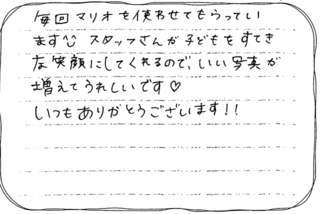 毎回マリオを使わせてもらってい
ます☺ スタッフさんが子どもをすてき
な笑顔にしてくれるので、いい写真が
増えてうれしいです♡
いつもありがとうございます!!